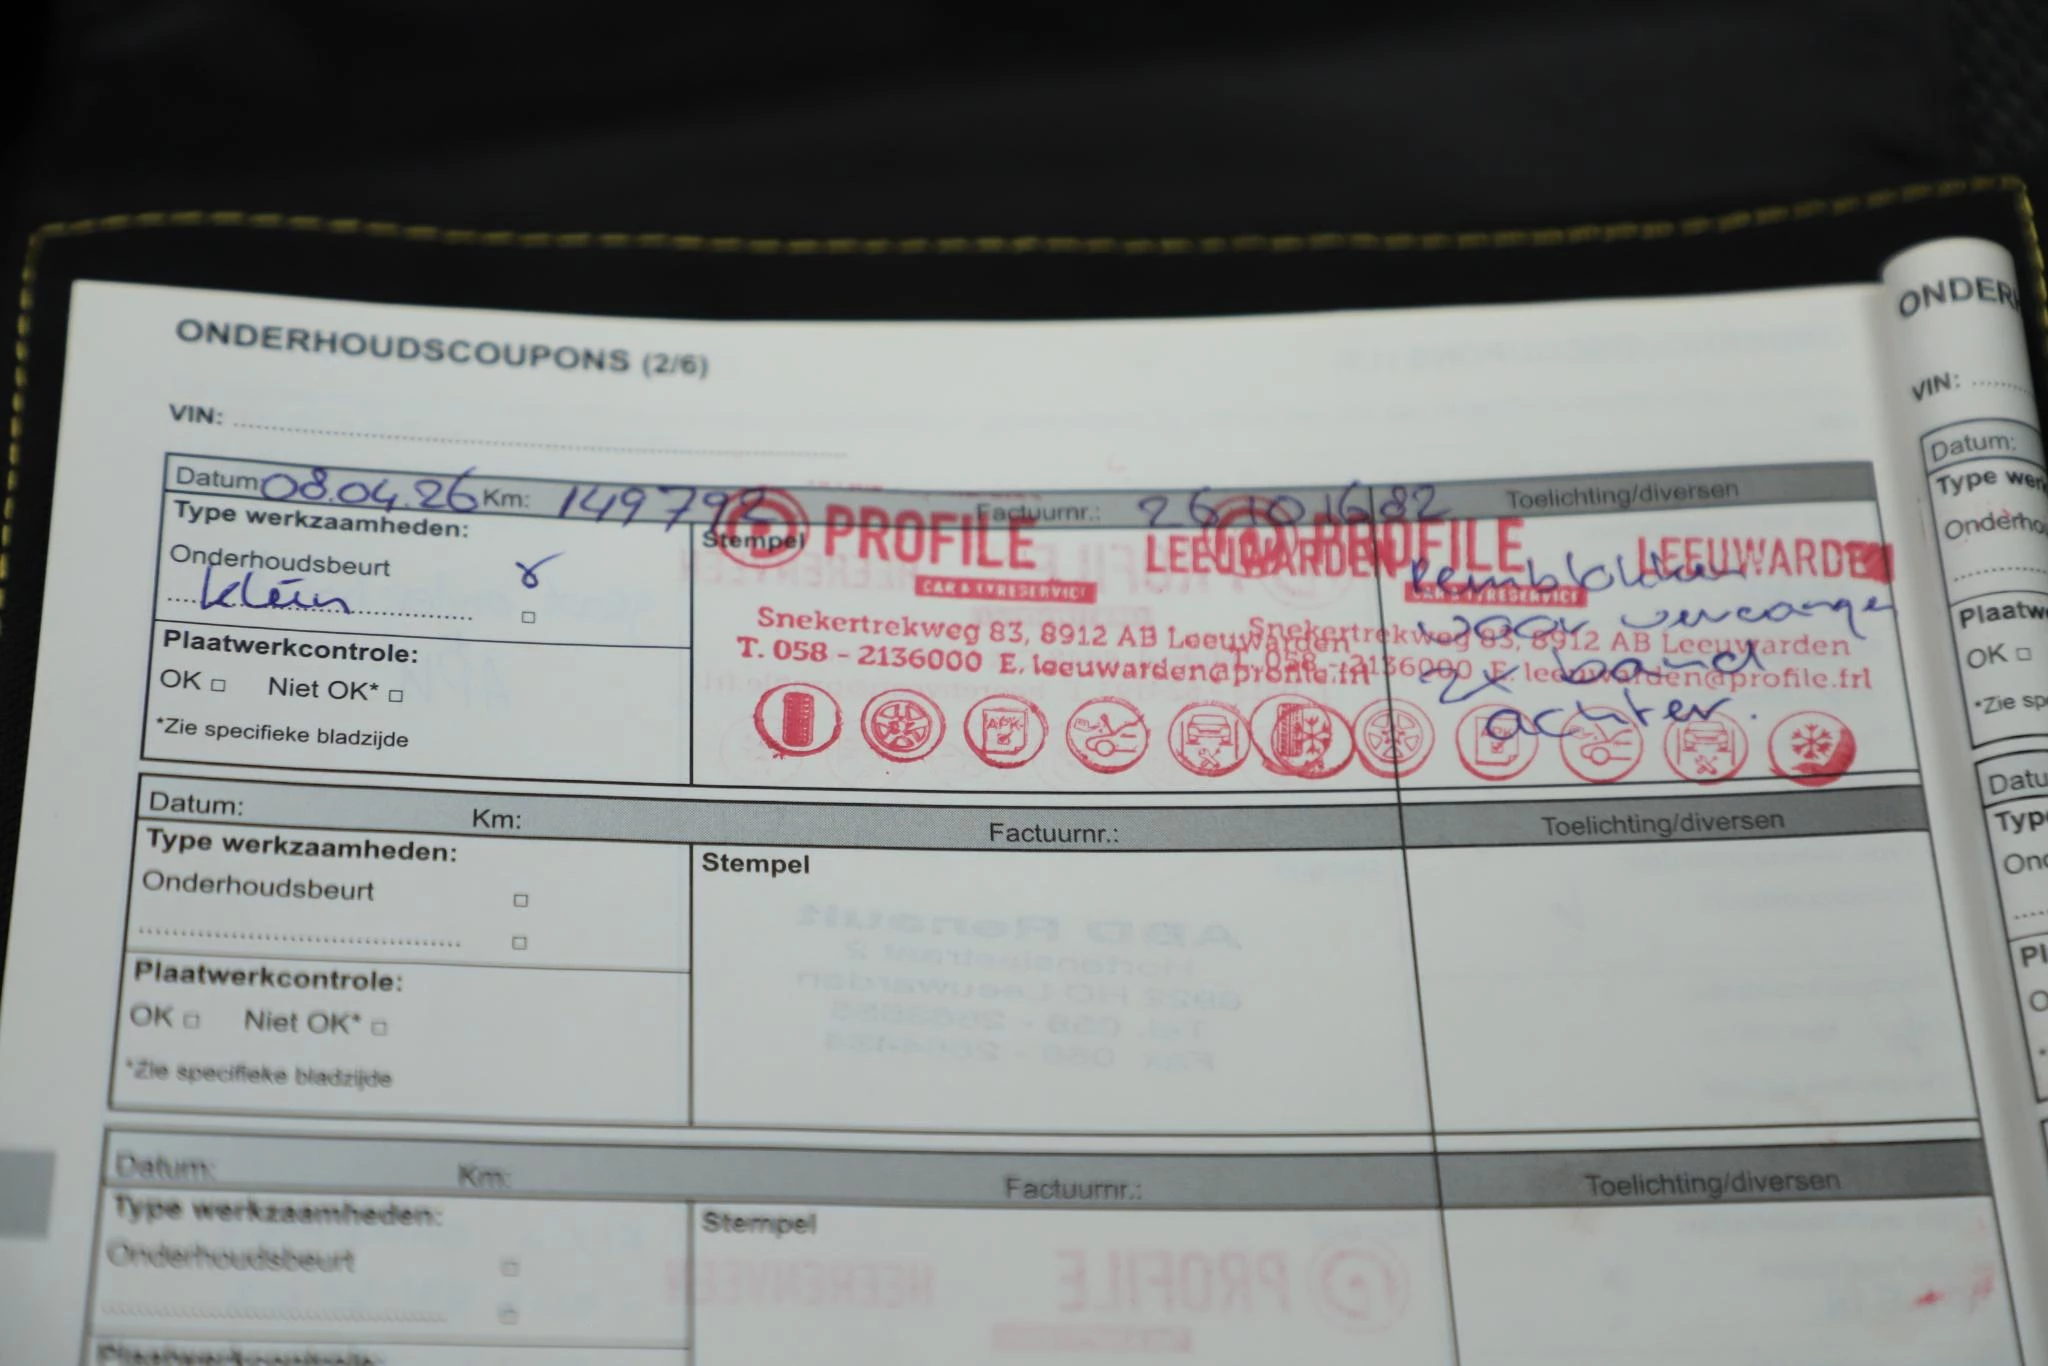 ONDERHOUDSCOUPONS (2/6)
VIN:
Datum: 08.04.26 Km: 149792 Factuurnr.: 26101682 Toelichting/diversen
Type werkzaamheden:
Onderhoudsbeurt
klein
Plaatwerkcontrole:
OK Niet OK*
*Zie specifieke bladzijde
Stempel
PROFILE LEEUWARDEN
CAR & TYRESERVICE
Snekertrekweg 83, 8912 AB Leeuwarden
T. 058 - 2136000 E. leeuwarden@profile.frl
APK
PROFILE LEEUWARDEN
CAR & TYRESERVICE
Snekertrekweg 83, 8912 AB Leeuwarden
T. 058 - 2136000 E. leeuwarden@profile.frl
APK
voor
2x band
achter.
Datum: Km: Factuurnr.: Toelichting/diversen
Type werkzaamheden:
Onderhoudsbeurt
Plaatwerkcontrole:
OK Niet OK*
*Zie specifieke bladzijde
Stempel
Datum: Km: Factuurnr.: Toelichting/diversen
Type werkzaamheden:
Onderhoudsbeurt
Plaatwerkcontrole:
Stempel
VIN:
Datum:
OK